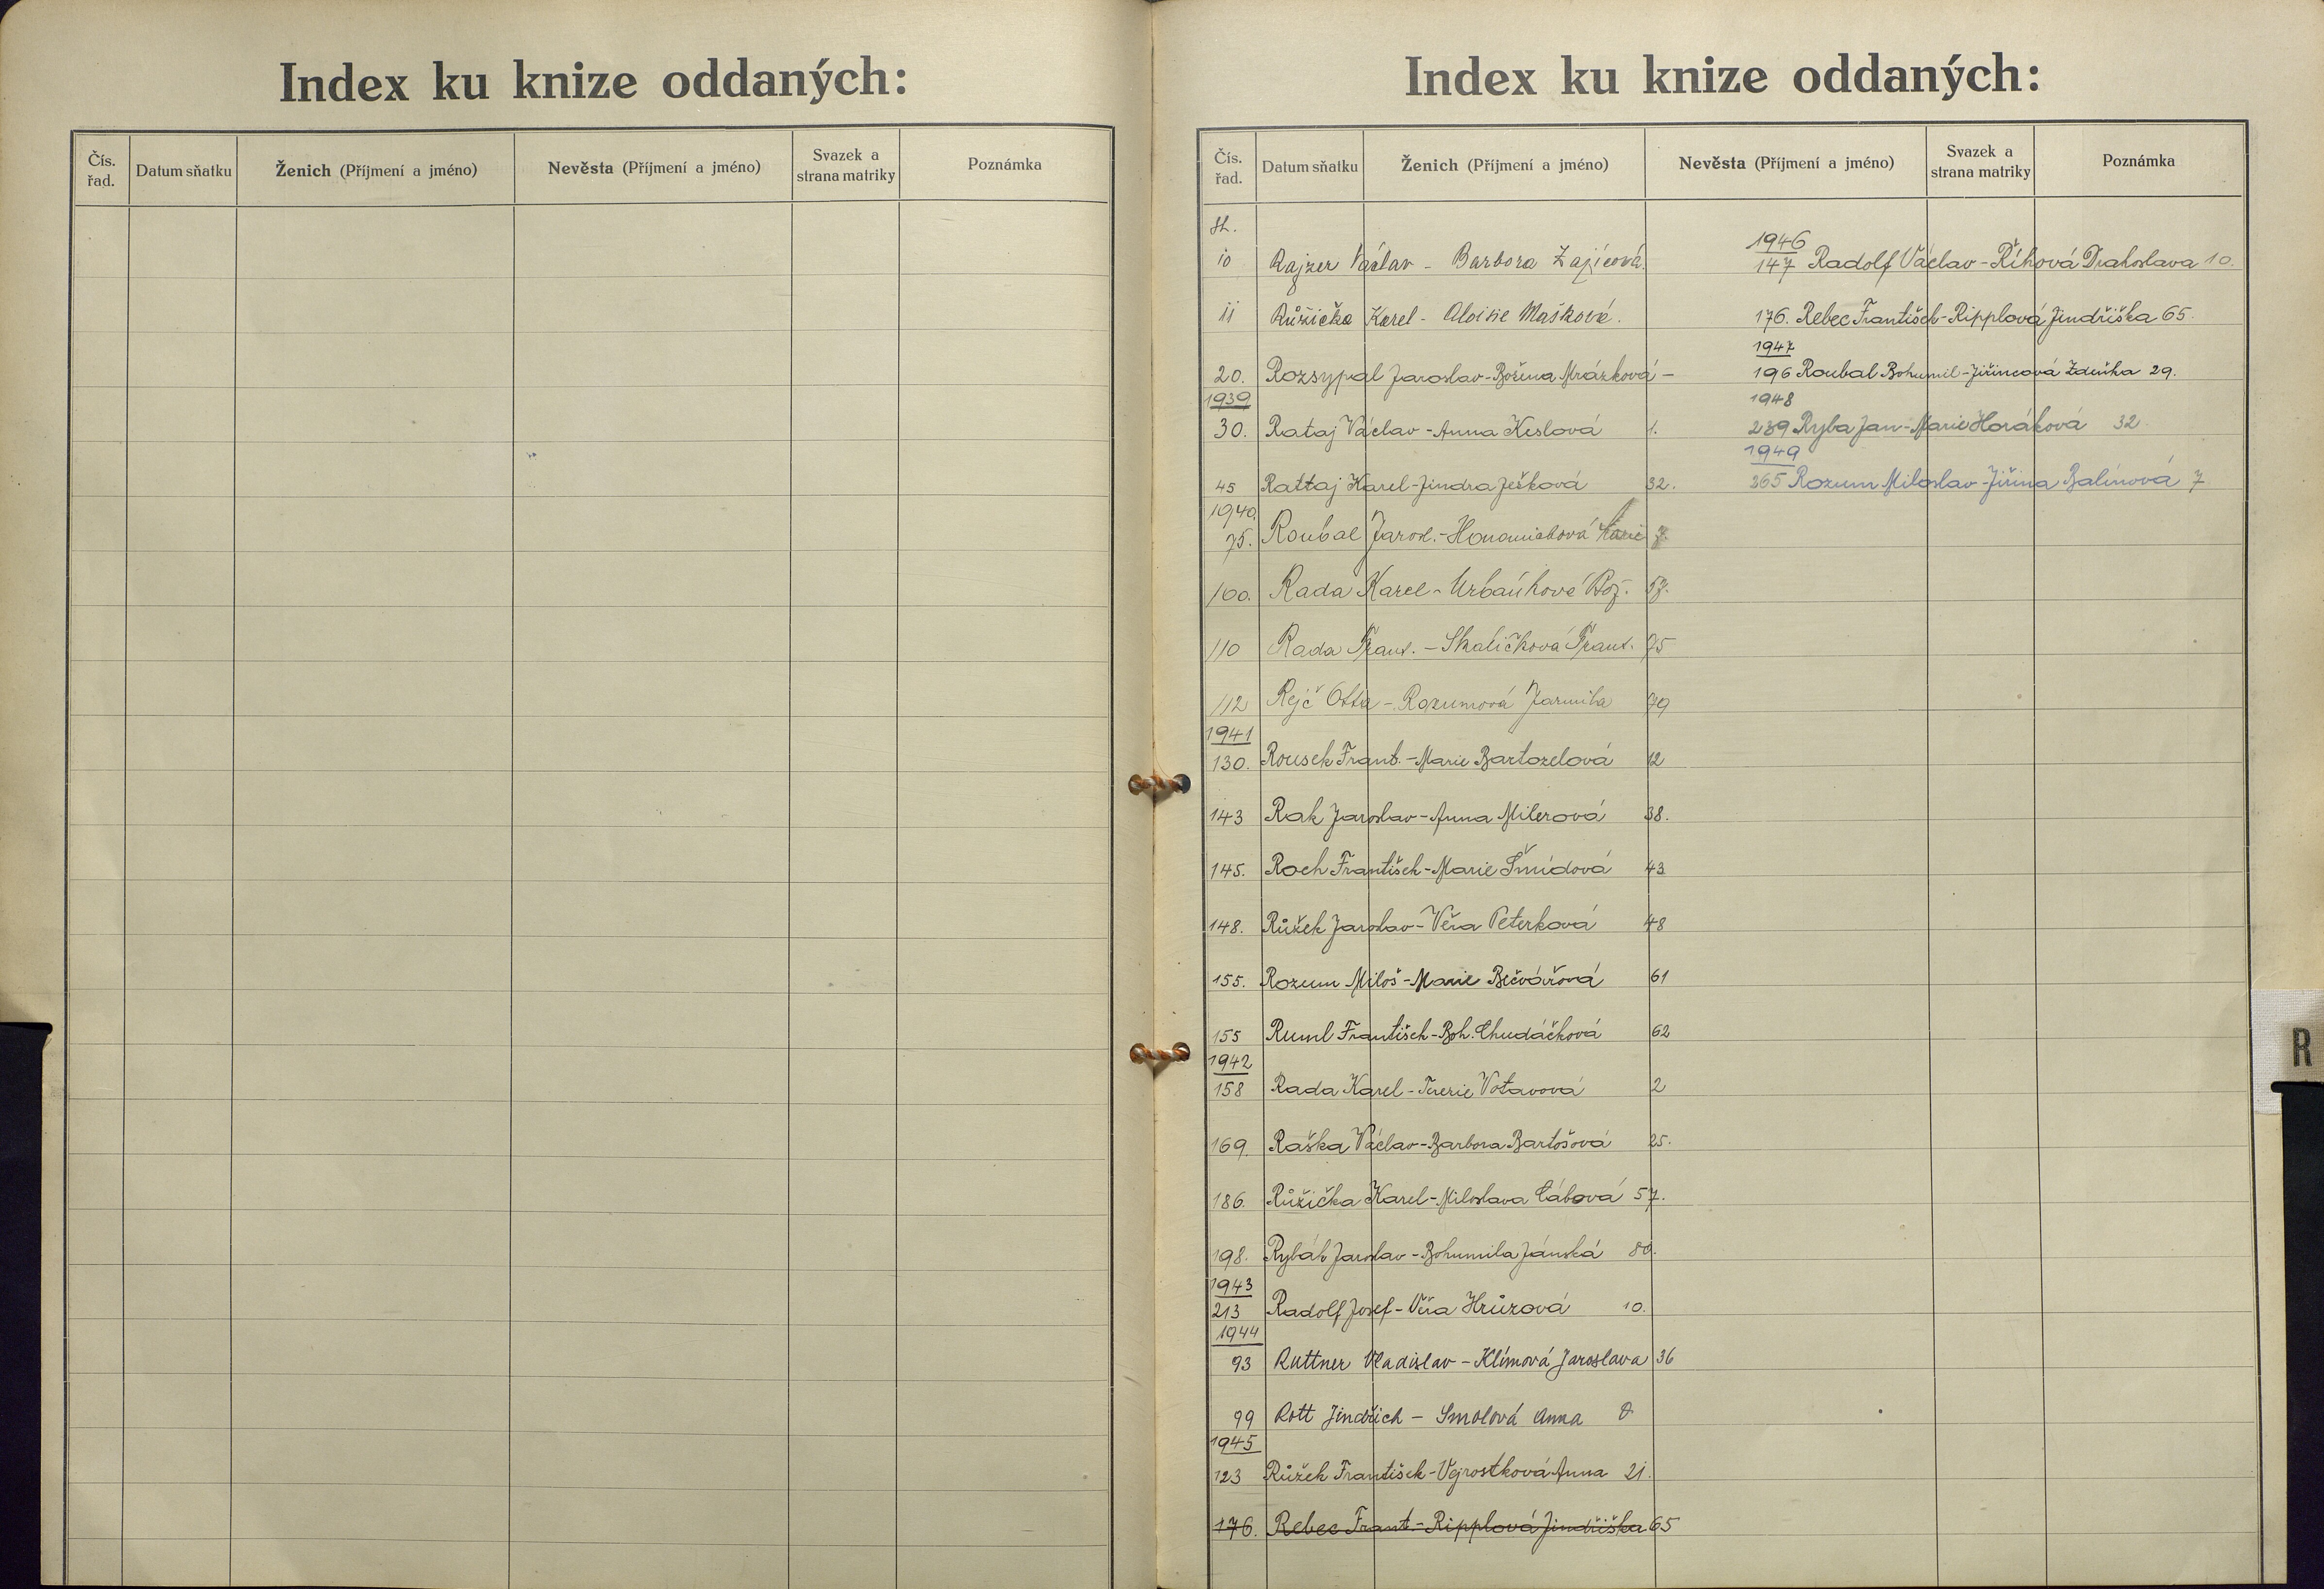 Index ku knize oddaných:
Čís. řad.
Datum sňatku
Ženich (Příjmení a jméno)
Nevěsta (Příjmení a jméno)
Svazek a strana matriky
Poznámka
Index ku knize oddaných:
Čís. řad.
Datum sňatku
Ženich (Příjmení a jméno)
Nevěsta (Příjmení a jméno)
Svazek a strana matriky
Poznámka
10 Rajzer Václav - Barbora Zajícová.
11 Růžička Karel - Aloisie Mašková.
20. Rozsypal Jaroslav - Božena Mrázková -
1939
30. Rataj Václav - Anna Keslová 1.
45 Rattaj Karel - Jindra Ješková 32.
1940.
75. Roubal Jarosl. - Marie
100. Rada Karel - Bož. 57.
110 Rada Frant. - Skaličková Frant. 75
112 Rejč Otta - Rozumová Jarmila 79
1941
130. Rousek Frant. - Marie Bartozelová 12
143 Rak Jaroslav - Anna Milerová 38.
145. Roch František - Marie Šmídová 43
148. Růžek Jaroslav - Věra Peterková 48
155. Rozum Miloš - Marie Bečvářová 61
155 Ruml František - Boh. Chudáčková 62
1942
158 Rada Karel - Terezie Votavová 2
169. Raška Václav - Barbora Bartošová 25.
186. Růžička Karel - Miloslava Cábová 57.
198. Rybák Jaroslav - Bohumila Jánská 80.
1943
213 Radolf Josef - Věra Hrůzová 10.
1944
93 Ruttner Vladislav - Klímová Jaroslava 36
99 Rott Jindřich - Smolová Anna
1945
123 Růžek František - Vejrostková Anna 21.
176. Rebec Frant. - Ripplová Jindřiška 65
1946
147 Radolf Václav - Říhová Drahoslava 10.
176. Rebec František - Ripplová Jindřiška 65.
1947
196 Roubal Bohumil - Jiřincová Zdeňka 29.
1948
239 Ryba Jan - Marie Horáková 32
1949
265 Rozum Miloslav - Jiřina Balínová 7
R